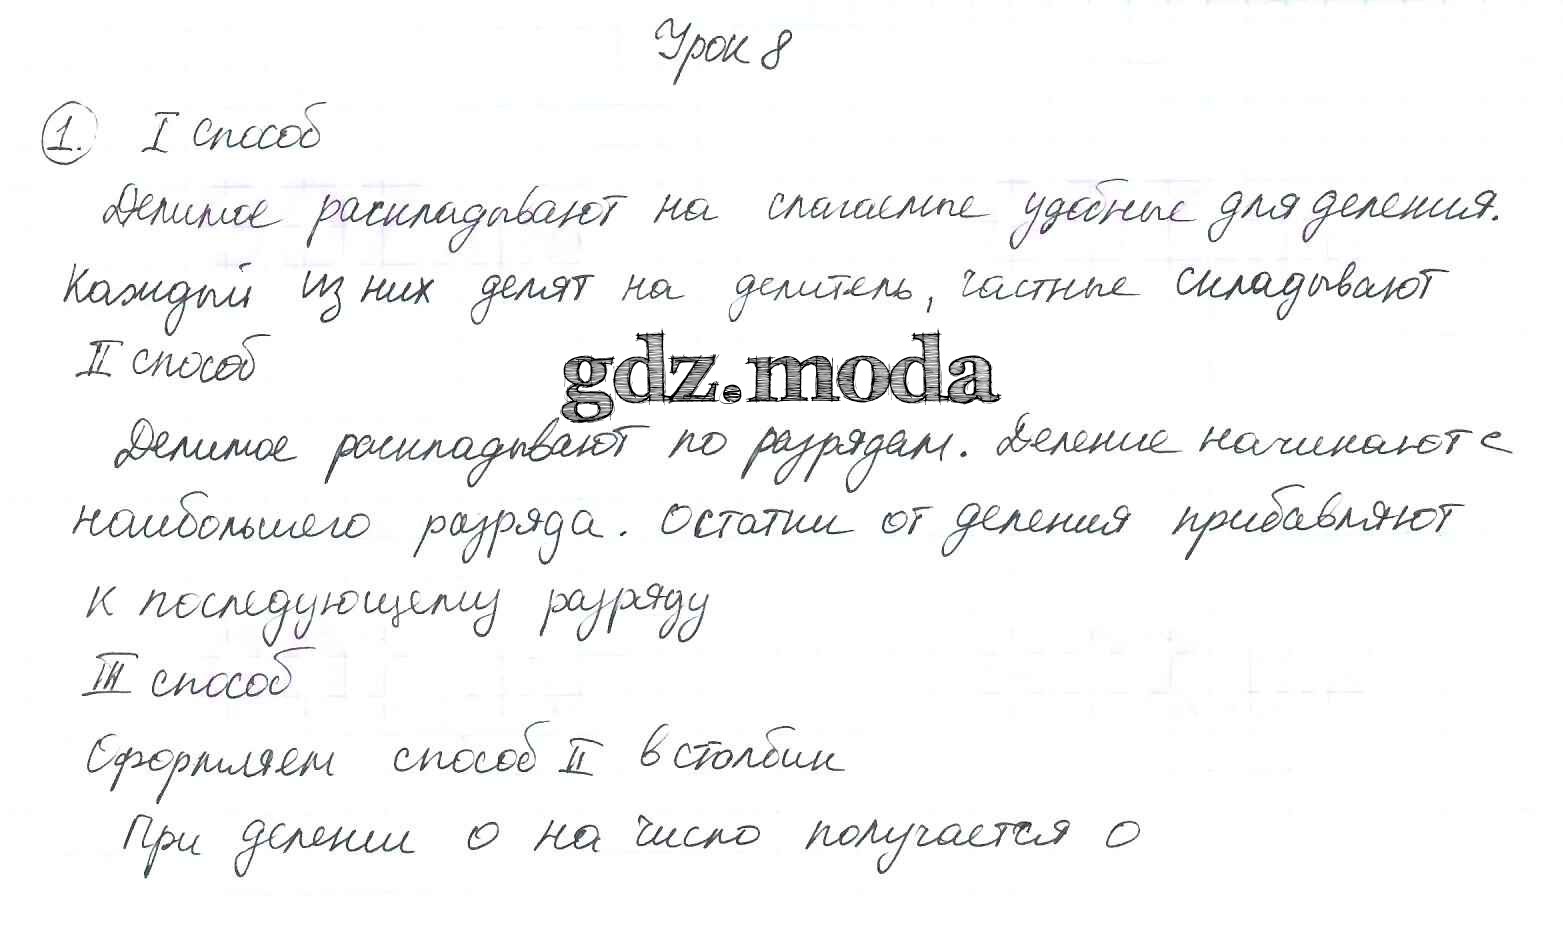 Урок 8
1. I способ
Делимое раскладывают на слагаемые удобные для деления.
Каждый из них делят на делитель, частные складывают
II способ
gdz.moda
Делимое раскладывают по разрядам. Деление начинают с
наибольшего разряда. Остатки от деления прибавляют
к последующему разряду
III способ
Оформляем способ II в столбик
При делении 0 на число получается 0